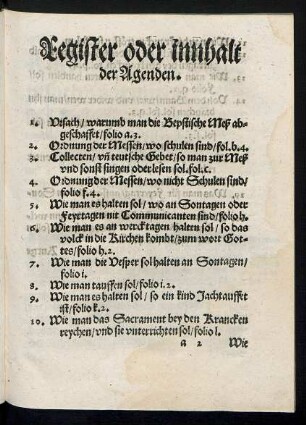 Register oder innhalt
der Agenden.
1. Vrsach/ warumb man die Bepstische Meß ab-
geschaffet/ folio a.3.
2. Ordnung der Messen/ wo schulen sind/ fol.b.4.
3. Collecten/ vñ teutsche Gebet/ so man zur Meß
vnd sonst singen oder lesen sol. fol.c.
4. Ordnung der Messen/ wo nicht Schulen sind/
folio f.4.
5. Wie man es halten sol/ wo an Sontagen oder
Feyrtagen nit Communicanten sind/ folio h.
6. Wie man es an wercktagen halten sol/ so das
volck in die Kirchen kombt/ zum wort Got-
tes/ folio h.2.
7. Wie man die Vesper sol halten an Sontagen/
folio i.
8. Wie man tauffen sol/ folio i.2.
9. Wie man es halten sol/ so ein kind Jachtaufft
ist/ folio k.2.
10. Wie man das Sacrament bey den Krancken
reychen/ vnd sie vnterrichten sol/ folio l.
a 2 Wie